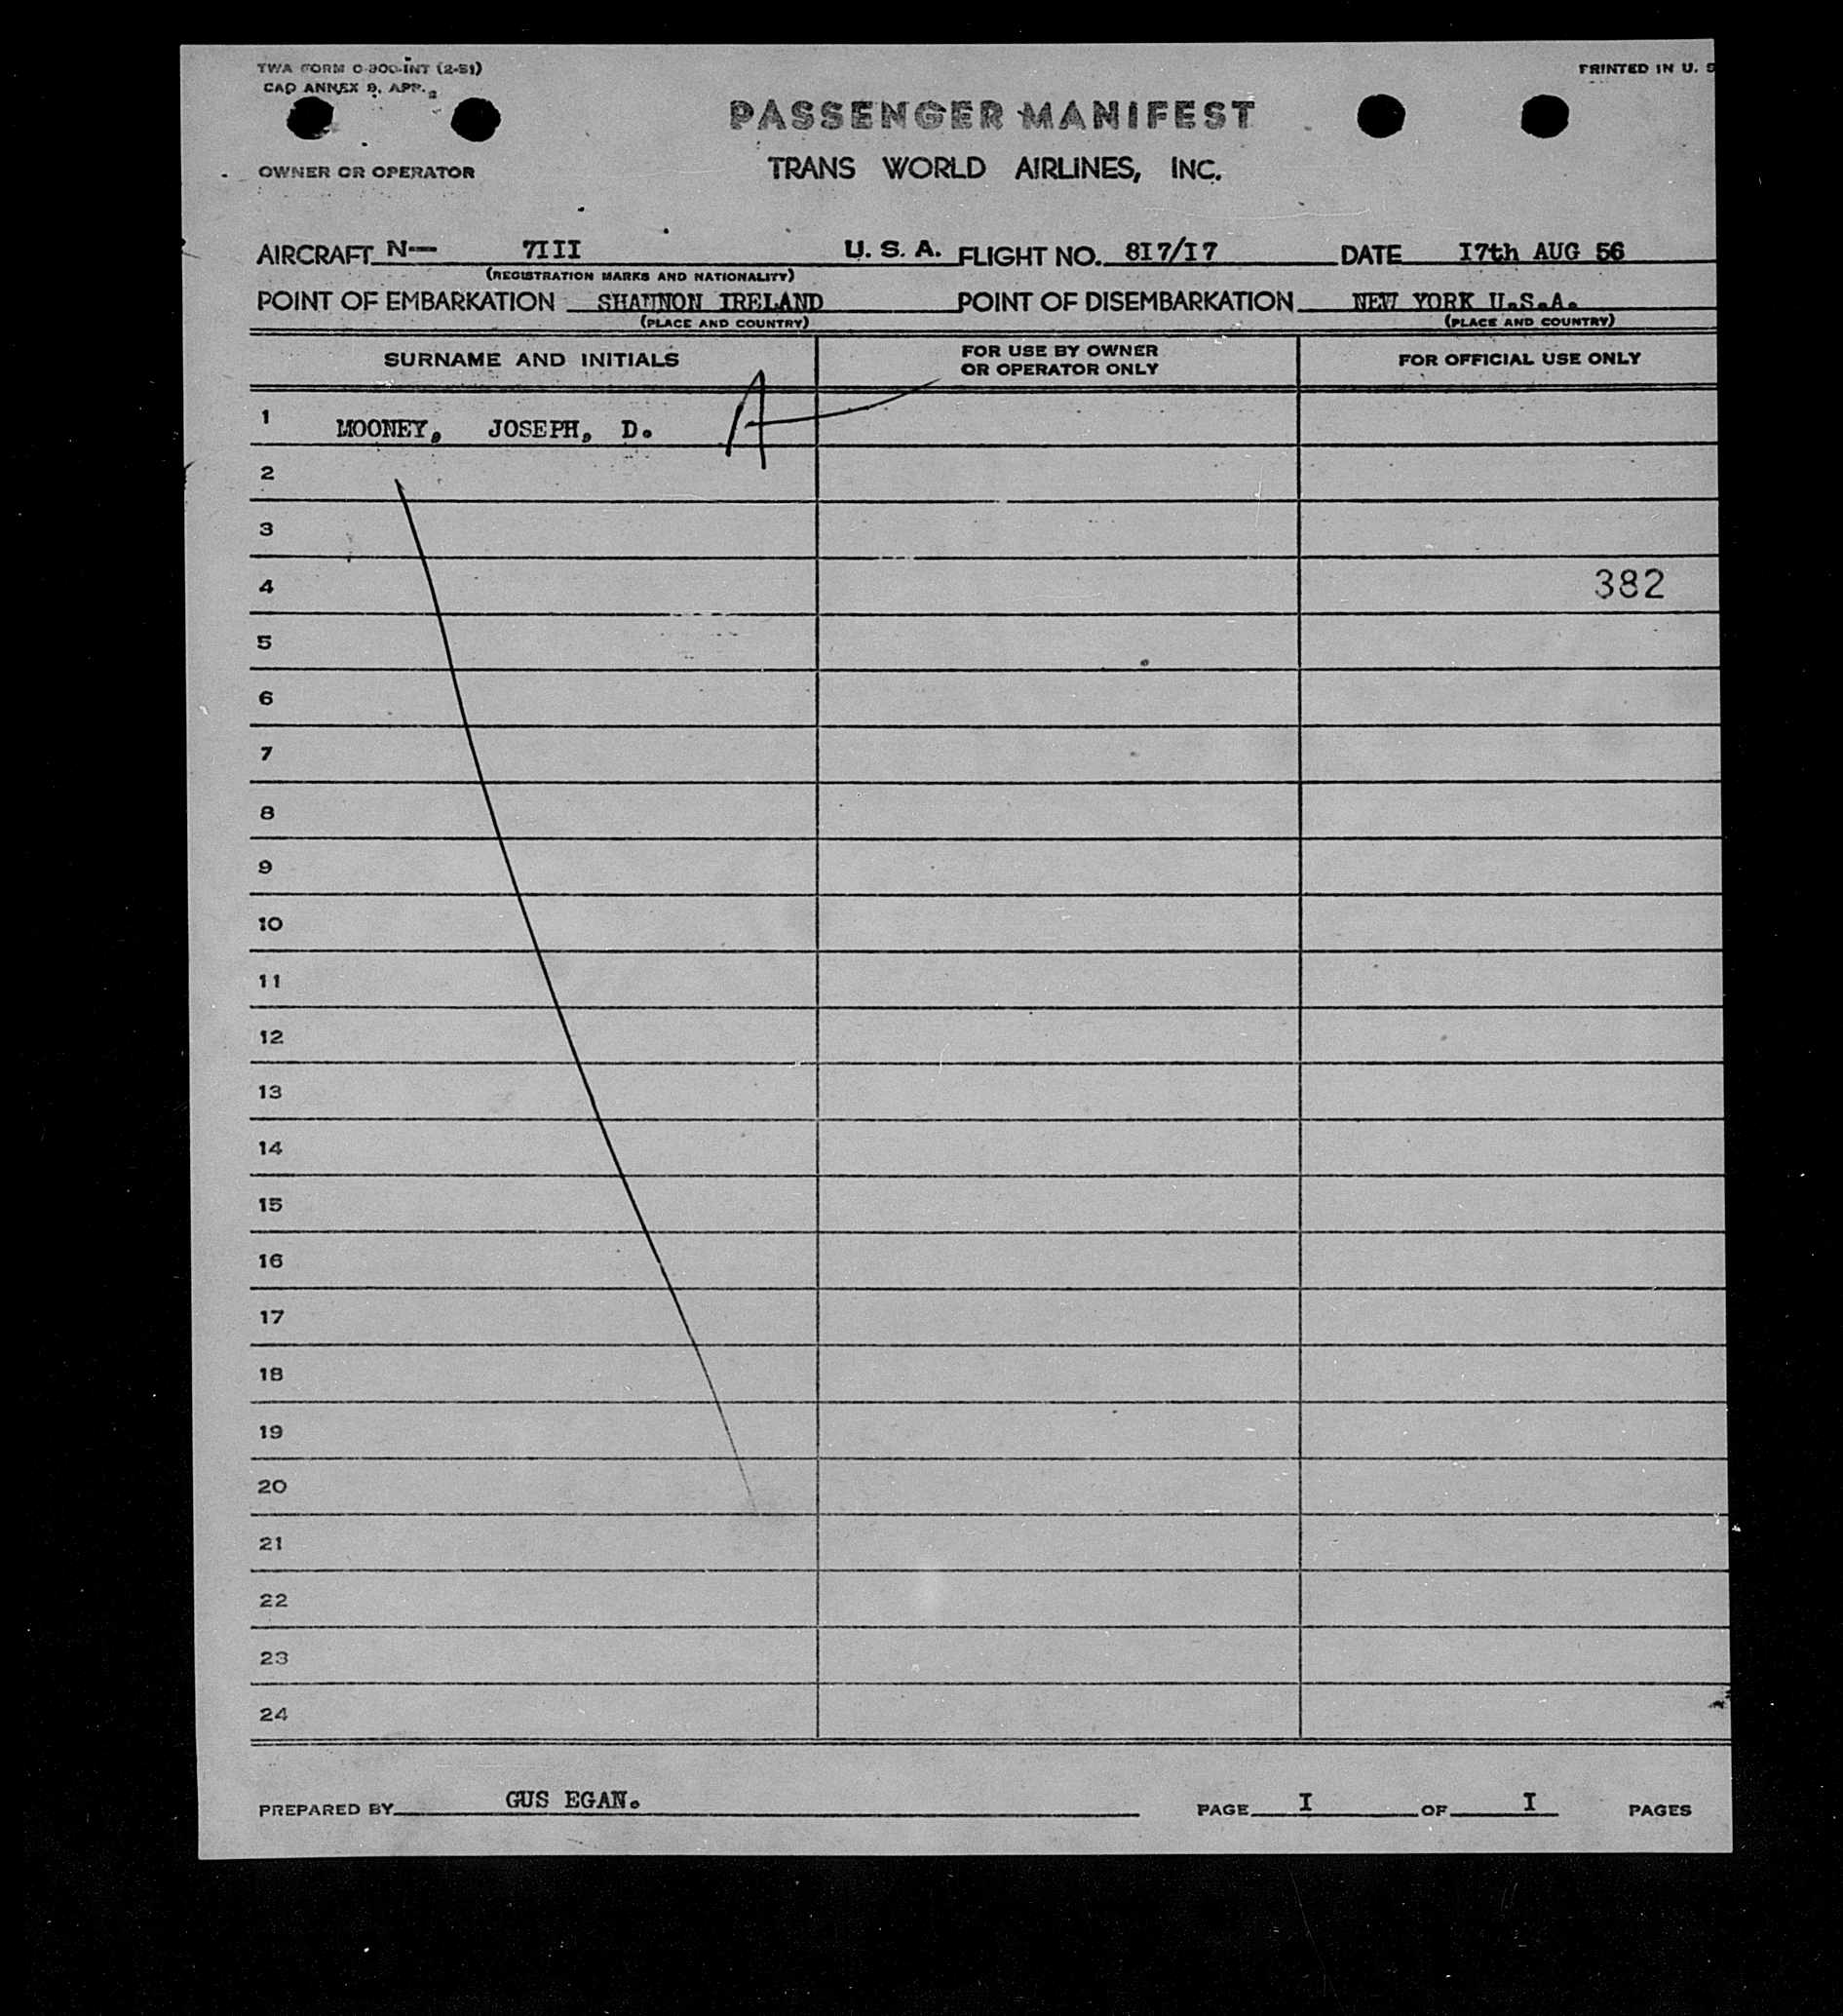 TWA FORM C-300-INT (2-51)
PRINTED IN U. S
CAO ANNEX 9, APP.
PASSENGER MANIFEST
OWNER OR OPERATOR
TRANS WORLD AIRLINES, INC.
AIRCRAFT N— 7III U. S. A. FLIGHT NO. 8I7/I7 DATE I7th AUG 56
(REGISTRATION MARKS AND NATIONALITY)
POINT OF EMBARKATION SHANNON IRELAND POINT OF DISEMBARKATION NEW YORK U.S.A.
(PLACE AND COUNTRY) (PLACE AND COUNTRY)
SURNAME AND INITIALS FOR USE BY OWNER OR OPERATOR ONLY FOR OFFICIAL USE ONLY
1 MOONEY, JOSEPH, D. A
2
3
4 382
5
6
7
8
9
10
11
12
13
14
15
16
17
18
19
20
21
22
23
24
PREPARED BY GUS EGAN. PAGE I OF I PAGES